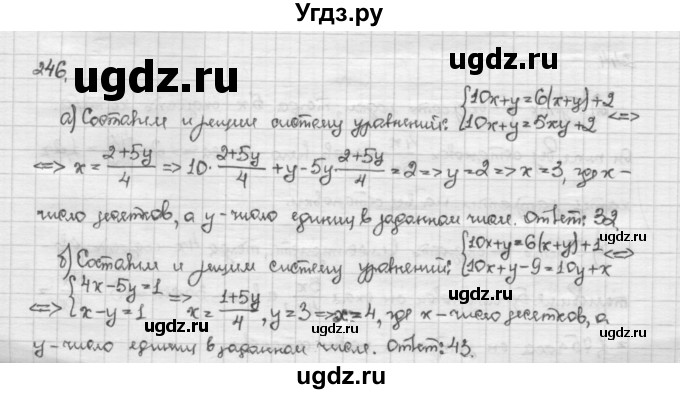 Угдз.ру
246.
ugdz.ru ugdz.ru
а) Составим и решим систему уравнений: {10x+y=6(x+y)+2 {10x+y=5xy+2 <=>
<=> x = (2+5y)/4 => 10·(2+5y)/4 + y - 5y·(2+5y)/4 = 2 => y=2 => x=3, где x-
число десятков, а y-число единиц в заданном числе. Ответ: 32.
ugdz.ru
б) Составим и решим систему уравнений: {10x+y=6(x+y)+1 {10x+y-9=10y+x <=>
<=> {4x-5y=1 {x-y=1 => x = (1+5y)/4, y=3 => x=4, где x-число десятков, а
ugdz.ru
y-число единиц в заданном числе. Ответ: 43.
ugdz.ru